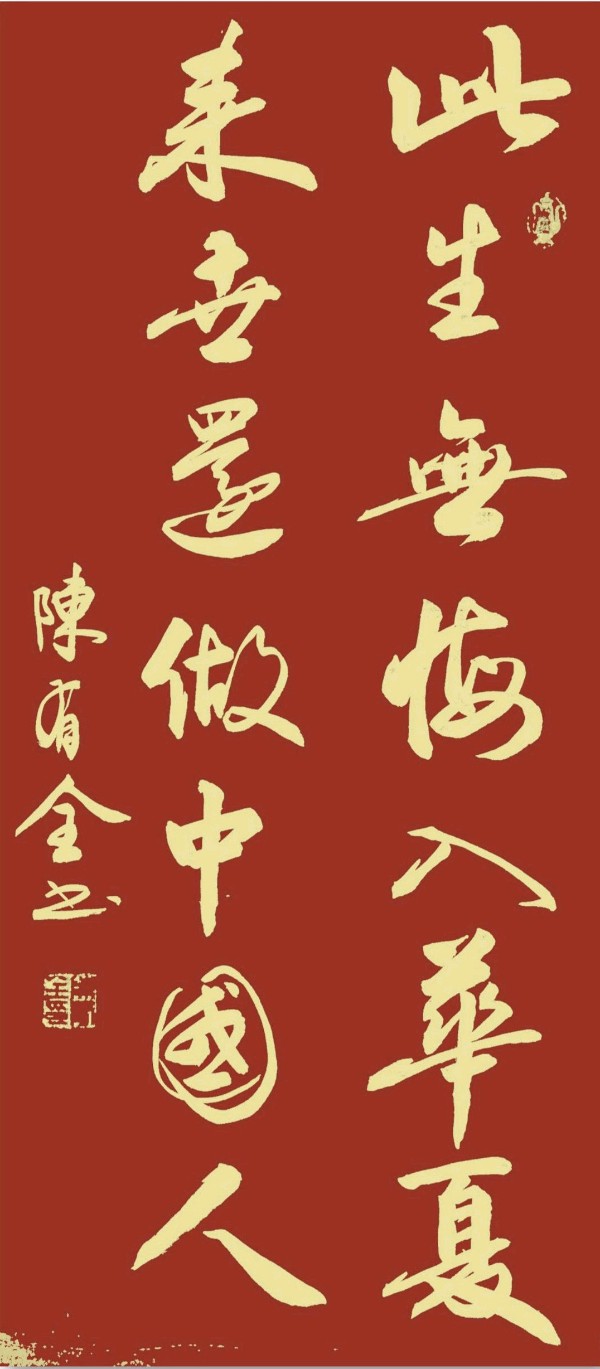 此生無悔入華夏
来世還做中國人
陳有全书